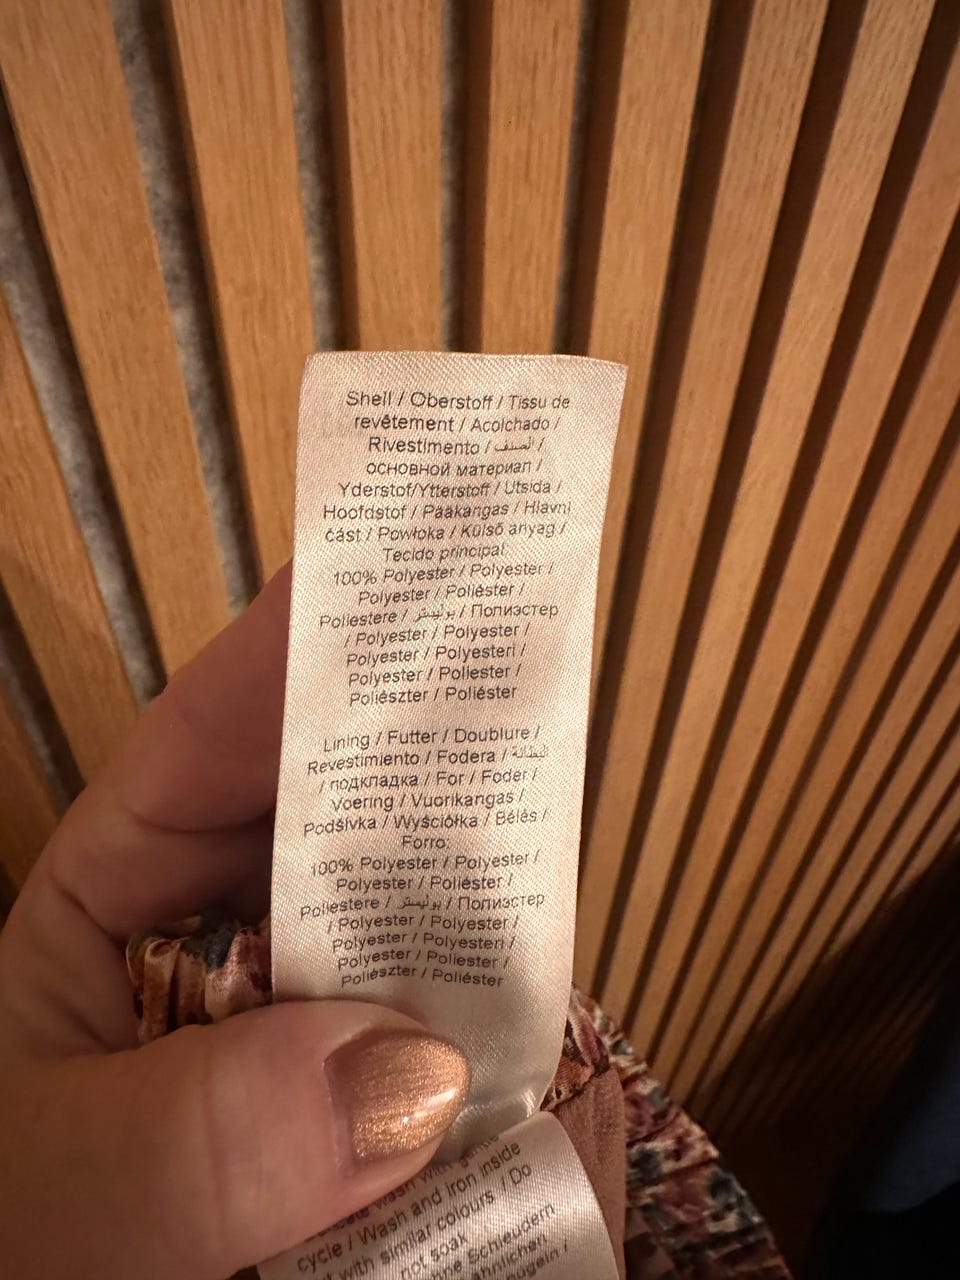 Shell / Oberstoff / Tissu de
revêtement / Acolchado /
Rivestimento / الصنف /
основной материал /
Yderstof/Ytterstoff / Utsida /
Hoofdstof / Pääkangas / Hlavní
část / Powłoka / Külső anyag /
Tecido principal:
100% Polyester / Polyester /
Polyester / Poliéster /
Poliestere / بوليستر / Полиэстер
/ Polyester / Polyester /
Polyester / Polyesteri /
Polyester / Poliester /
Poliészter / Poliéster
Lining / Futter / Doublure /
Revestimiento / Fodera / البطانة
/ подкладка / For / Foder /
Voering / Vuorikangas /
Podšívka / Wyściółka / Bélés /
Forro:
100% Polyester / Polyester /
Polyester / Poliéster /
Poliestere / بوليستر / Полиэстер
/ Polyester / Polyester /
Polyester / Polyesteri /
Polyester / Poliester /
Poliészter / Poliéster
wash with gentle
cycle / Wash and iron inside
with similar colours / Do
not soak
Schleudern
ähnlichen